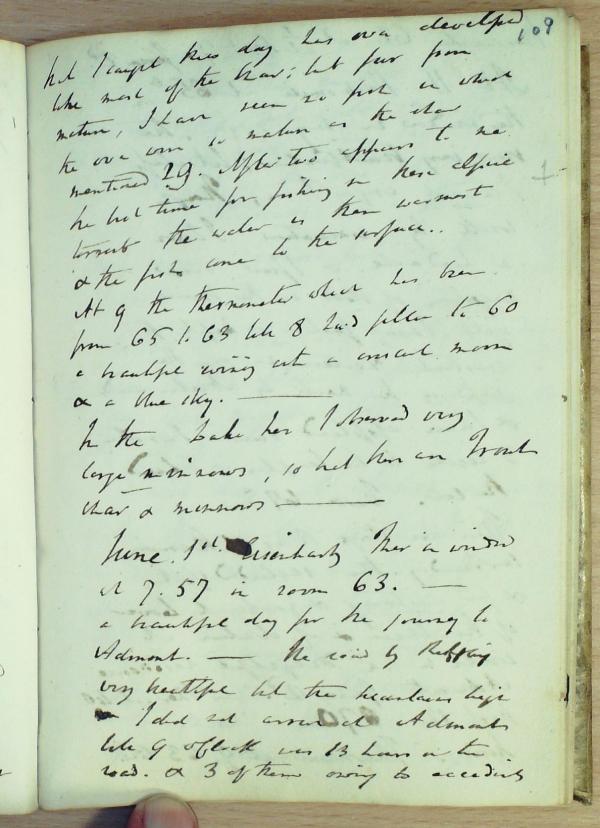 109
but I caught this day has ova developed
like most of the Char; but far from
mature, I have seen no fish in which
the ova were so mature as the char
mentioned 29. After two appears to me
the best time for fishing in these alpine
the water is then warmest
& the fish come to the surface..
At 9 the thermometer which has been
from 65 to 63 till 8 had fallen to 60
a beautiful evening with a crescent moon
& a blue sky. —
In the Lake here I observed very
large minnows, so that there are Trout
char & minnows —
June. 1st. Ther in window
at 7. 57 in room 63. —
a beautiful day for the journey to
Admont. — The road by
very beautiful but the mountains high
I did not arrive at Admont
till 9 o'clock was 13 hours on the
road. & 3 of them owing to accidents